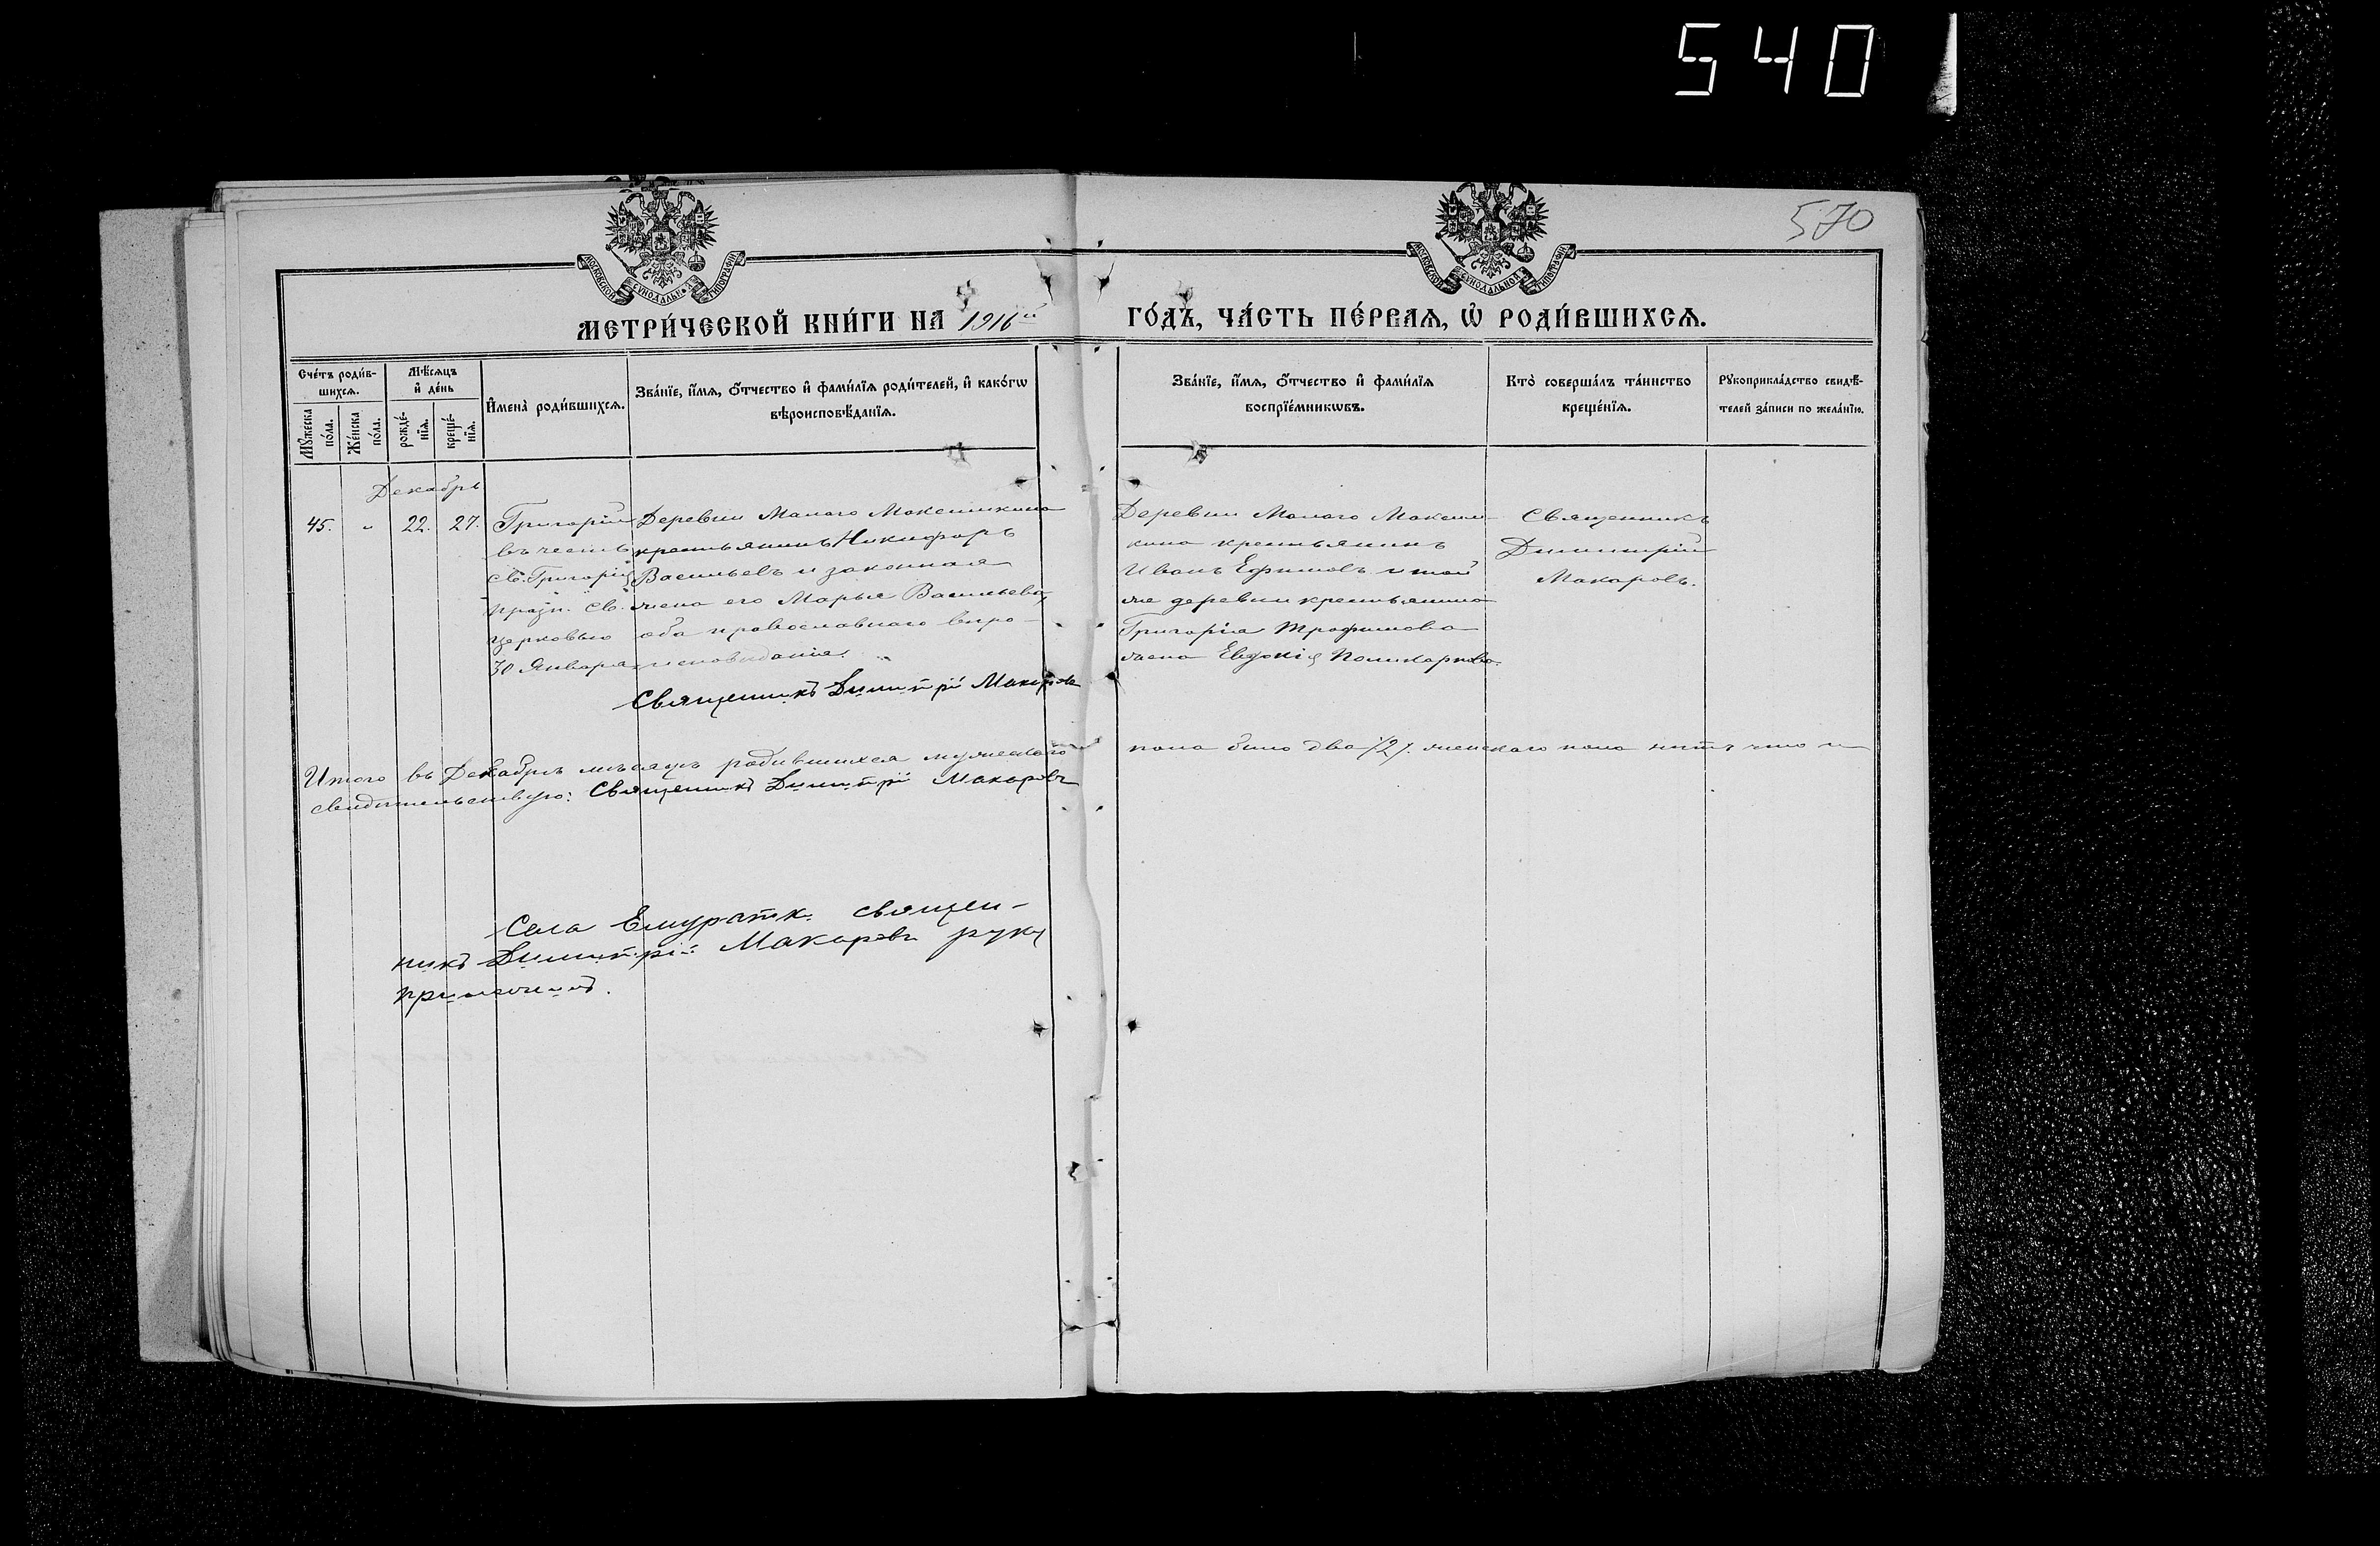 540
570
МОСКОВСКОЙ СУНОДАЛЬНОЙ ТИПОГРАФІИ
МОСКОВСКОЙ СУНОДАЛЬНОЙ ТИПОГРАФІИ
МЕТРИ́ЧЕСКОЙ КНИ́ГИ НА 1916й ГО́ДЪ, ЧА́СТЬ ПЕ́РВАѦ, Ѽ РОДИ́ВШИХСѦ.
Сче́тъ роди́в-
шихсѧ.
Мꙋ́жеска
по́ла.
Же́нска
по́ла.
Мѣ́сѧцъ
и҆ де́нь
рожде́-
нїѧ.
креще́-
нїѧ.
И҆мена̀ роди́вшихсѧ.
Зва́нїе, и҆́мѧ, ѻ҆́тчество и҆ фами́лїѧ роди́телей, и҆ како́гѡ
вѣроисповѣ́данїѧ.
Зва́нїе, и҆́мѧ, ѻ҆́тчество и҆ фами́лїѧ
воспрїе́мникѡвъ.
Кто̀ соверша́лъ та́инство
креще́нїѧ.
Рꙋкоприкла́дство свидѣ́-
телей за́писи по жела́нїю.
Декабрь
45. „ 22. 27.
Григорій
въ честь
св. Григорія
празн. св.
церковью
30 Января
Деревни Малаго Макешкина
крестьянинъ Никифоръ
Васильевъ и законная
жена его Марья Васильева,
оба православнаго вѣро-
исповѣданія.
Священникъ Димитрій Макаровъ
Деревни Малаго Макеш-
кина крестьянинъ
Иванъ Ефимовъ и той
же деревни крестьянина
Григорія Трофимова
жена Евдокія Поликарпова.
Священникъ
Димитрій
Макаровъ.
Итого въ Декабрѣ мѣсяцѣ родившихся мужескаго пола было два /2/. женскаго пола нѣтъ что и
свидѣтельствую: Священникъ Димитрій Макаровъ
Села священ-
никъ Димитрій Макаровъ руку
приложилъ.